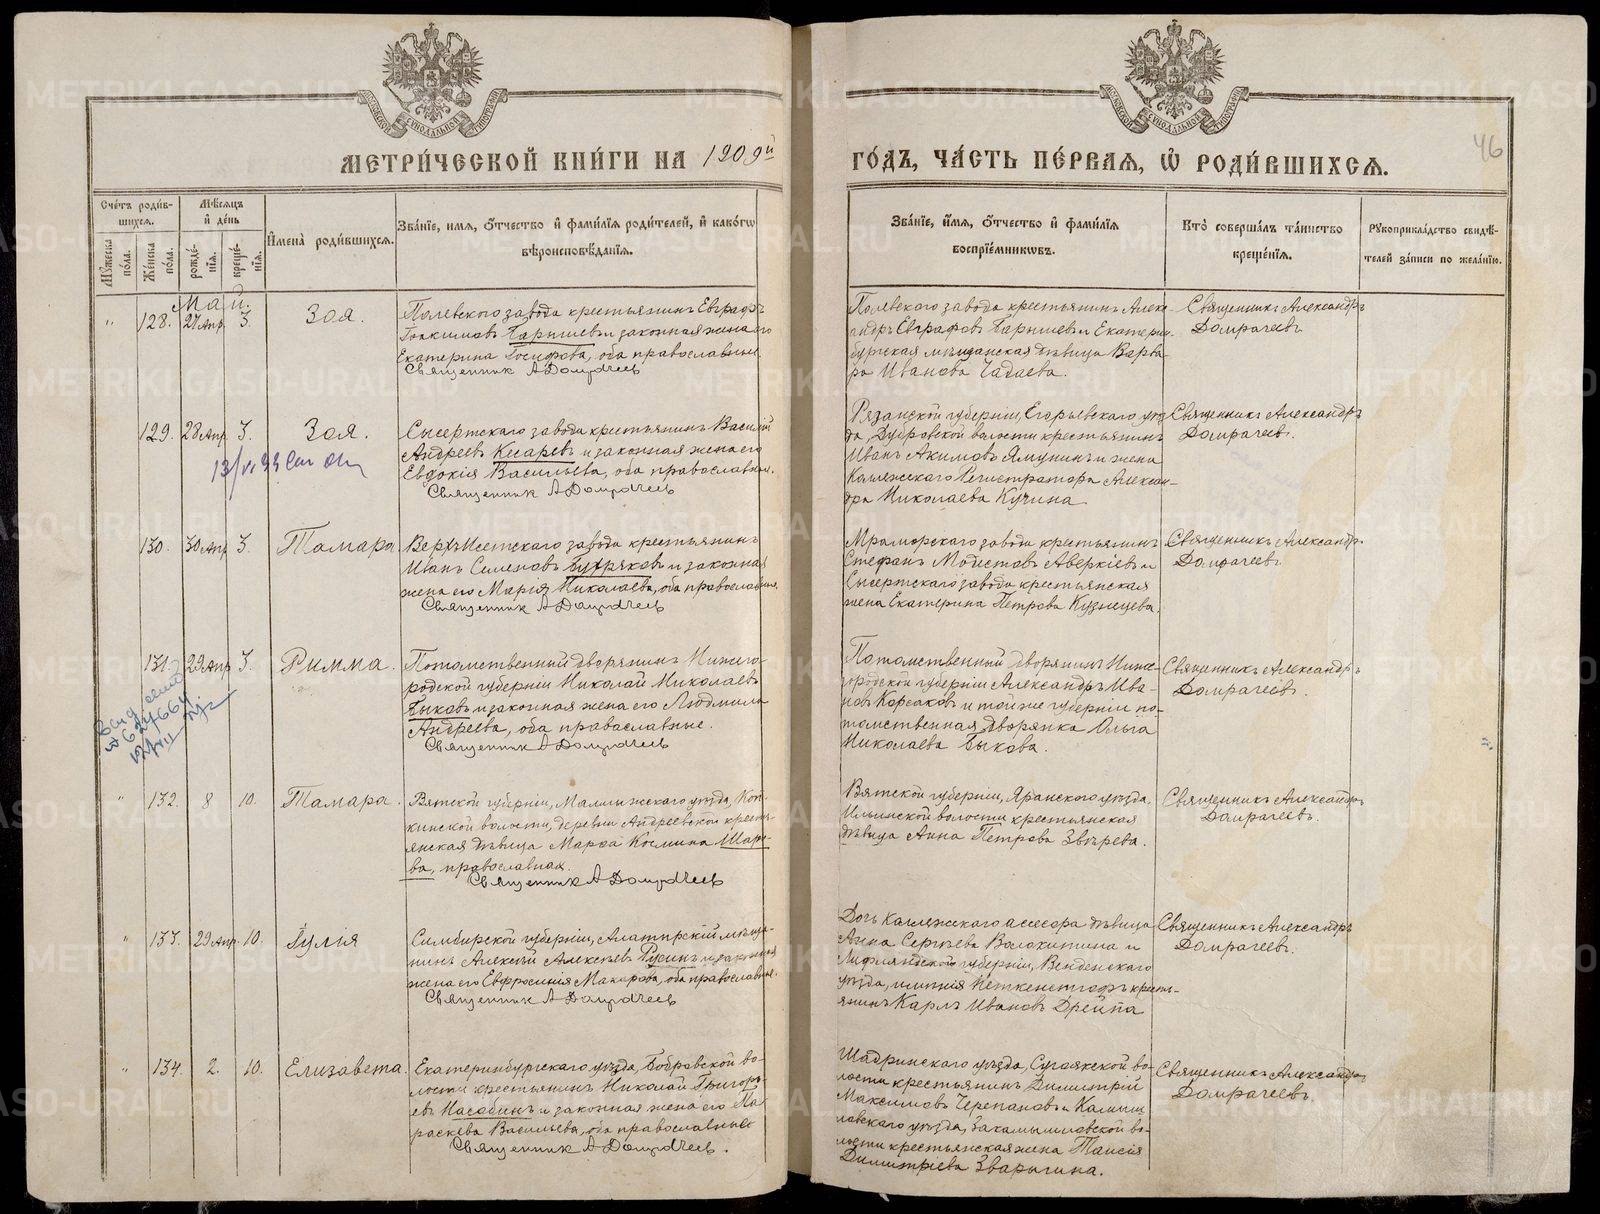 МЕТРИ́ЧЕСКОЙ КНИ́ГИ НА 1909й
ГО́ДЪ, ЧА́СТЬ ПЕ́РВАѦ, Ѽ РОДИ́ВШИХСѦ.
46
Сче́тъ роди́в-
шихсѧ.
Мꙋ́жеска
по́ла.
Же́нска
по́ла.
Мѣ́сѧцъ
и҆ де́нь
рожде́-
нїѧ.
креще́-
нїѧ.
И҆мена̀ роди́вшихсѧ.
Зва́нїе, и́мѧ, ѻ҆́тчество и҆ фами́лїѧ роди́телей, и҆ како́гѡ
вѣроисповѣ́данїѧ.
Зва́нїе, и҆́мѧ, ѻ҆́тчество и҆ фами́лїѧ
воспрїе́мникѡвъ.
Кто̀ соверша́лъ та́инство
креще́нїѧ.
Рꙋкоприкла́дство свидѣ́-
телей за́писи по жела́нїю.
Май.
128. 27 Апр. 3.
Зоя.
Полевского завода крестьянинъ Евграфъ
Іоакимовъ Барышевъ и законная жена его
Екатерина Іосифова, оба православные.
Священникъ А Домрачеевъ
Полевского завода крестьянинъ Алекс-
андръ Евграфовъ Барышевъ и Екатерин-
бургская мѣщанская дѣвица Варва-
ра Иванова Чадаева.
Священникъ Александръ
Домрачеевъ
129. 28 Апр. 3.
Зоя.
Сысертскаго завода крестьянинъ Василій
Андреевъ Кесаревъ и законная жена его
Евдокія Васильева, оба православные.
Священникъ А Домрачеевъ
Рязанской губерніи, Егорьевскаго уѣз-
да, Дубровской волости крестьянинъ
Иванъ Акимовъ Ямунинъ и жена
Коллежскаго Регистратора Алексан-
дра Николаева Кучина
Священникъ Александръ
Домрачеевъ.
130. 30 Апр. 3.
Тамара
Верхъ Исетскаго завода крестьянинъ
Иванъ Семеновъ Бухряковъ и законная
жена его Марія Николаева, оба православные.
Священникъ А Домрачеевъ
Мраморскаго завода крестьянинъ
Стефанъ Модестовъ Аверкіевъ и
Сысертскаго завода крестьянская
жена Екатерина Петрова Кузнецева.
Священникъ Александръ
Домрачеевъ.
131. 29 Апр 3.
Римма.
Потомственный дворянинъ Нижего-
родской губерніи Николай Николаевъ
Быковъ и законная жена его Людмила
Андреева, оба православные.
Священникъ А Домрачеевъ
Потомственный дворянинъ Ниже-
городской губерніи Александръ Ива-
новъ Корсаковъ и той же губерніи по-
томственная дворянка Ольга
Николаева Быкова.
Священникъ Александръ
Домрачеевъ.
132. 8 10.
Тамара.
Вятской губерніи, Малмыжскаго уѣзда, Кон-
кинской волости, деревни Андреевской кресть-
янская дѣвица Марѳа Космина Шаро-
ва, православная.
Священникъ А Домрачеевъ
Вятской губерніи, Яранскаго уѣзда,
Ильинской волости крестьянская
дѣвица Анна Петрова Звѣрева.
Священникъ Александръ
Домрачеевъ.
133. 29 Апр. 10.
Іулія
Симбирской губерніи, Алатырскій мѣща-
нинъ Алексѣй Алексѣевъ Русинъ и законная
жена его Евфросинія Макарова, оба православные.
Священникъ А Домрачеевъ
Дочь коллежскаго ассесора дѣвица
Анна Сергѣева Волокитина и
Лифляндской губерніи, Венденскаго
уѣзда, имѣнія Кеткенсгофъ кресть-
янинъ Карлъ Ивановъ Дрейпа
Священникъ Александръ
Домрачеевъ.
134. 2. 10.
Елизавета.
Екатеринбургскаго уѣзда, Бобровской во-
лости крестьянинъ Николай Григорь-
евъ Насобинъ и законная жена его Па-
раскева Васильева, оба православные
Священникъ А Домрачеевъ.
Шадринскаго уѣзда, Сугоякской во-
лости крестьянинъ Димитрій
Максимовъ Черепановъ и Камыш-
ловскаго уѣзда, Закамышловской во-
лости крестьянская жена Таисія
Димитріева Зварыгина.
Священникъ Александръ
Домрачеевъ.